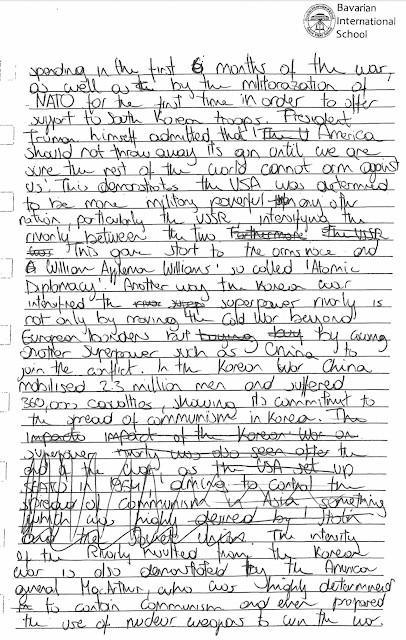 Bavarian
International
School
spending in the first 6 months of the war,
as well as by the militarazation of
NATO for the first time in order to offer
support to South Korean troops. President
Truman himself admitted that 'The U America
should not throw away its gun until we are
sure the rest of the world cannot arm against
us'. This demonstrates the USA was determined
to be more military powerful than any other
nation, particularly the USSR, intensifying the
rivalry between the two Furthermore the USSR
This gave start to the arms race and
William Williams' so called 'Atomic
Diplomacy'. Another way the Korean war
intensified the superpower rivalry is
not only by moving the Cold War beyond
European borders but by causing
another superpower such as China to
join the conflict. In the Korean War China
mobilised 2.3 million men and suffered
360,000 casualties, showing its commitment to
the spread of communism in Korea. The
impacts impact of the Korean War on
superpower rivalry was also seen after the
end of the as the USA set up
SEATO in 1954, aiming to control the
spread of communism in Asia, something
which was highly desired by Stalin
and the Soviet Union. The intensity
of the Rivalry resulted from the Korean
war is also demonstrated by the America
general MacArthur, who was highly determined
to contain communism and even prepared
the use of nuclear weapons to win the war.